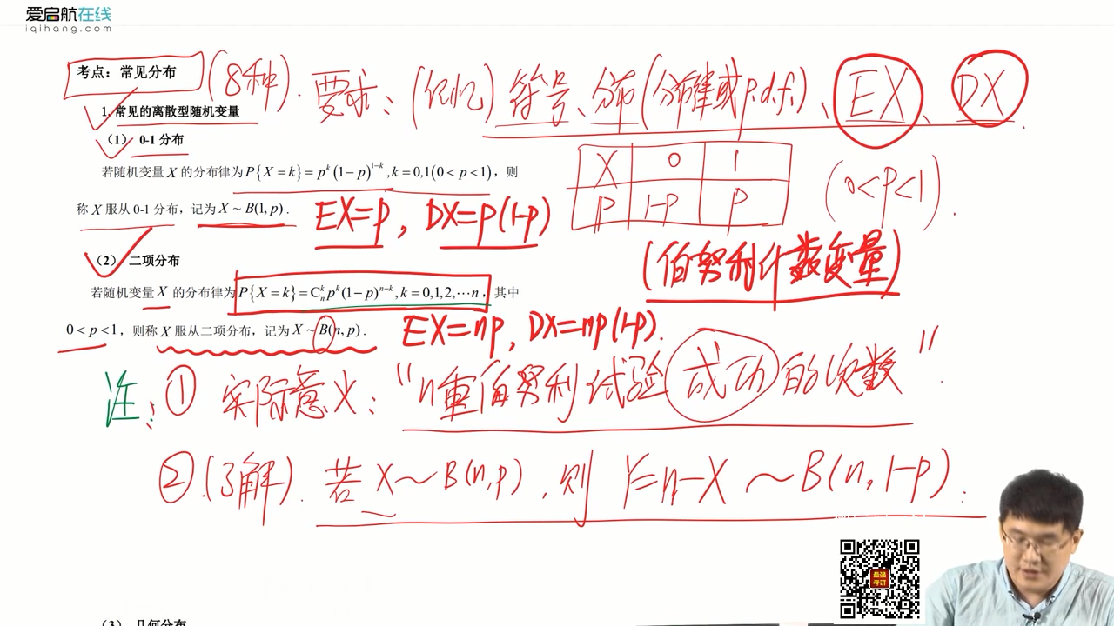 爱启航在线
iqihang.com
考点：常见分布 (8种). 要求：(记忆) 符号、分布(分布律或p.d.f.)、EX、DX.
1. 常见的离散型随机变量
（1） 0-1 分布
X 0 1
P 1-p p
(0<p<1).
若随机变量 X 的分布律为 P{X=k}=p^k(1-p)^{1-k},k=0,1(0<p<1)，则
称 X 服从 0-1 分布，记为 X~B(1,p). EX=p, DX=p(1-p)
(伯努利计数变量)
（2） 二项分布
若随机变量 X 的分布律为 P{X=k}=C_n^k p^k(1-p)^{n-k},k=0,1,2,⋯n，其中
0<p<1，则称 X 服从二项分布，记为 X~B(n,p). EX=np, DX=np(1-p).
注：① 实际意义：“n重伯努利试验成功的次数”.
②(了解). 若 X~B(n,p), 则 Y=n-X ~B(n,1-p).
（3） 几何分布